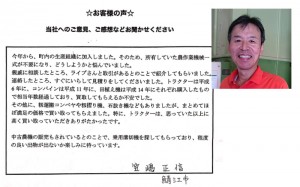 ☆お客様の声☆
当社へのご意見、ご感想などお聞かせください
今年から、町内の生産組織に加入しました。そのため、所有していた農作業機械一
式が不要になり、どうしようかと悩んでいました。
親戚に相談したところ、ライブさんと取引があるとのことで紹介してもらいました。
連絡したところ、すぐにいらして見積りをしてくださいました。トラクターは平成
6年に、コンバインは平成11年に、田植え機は平成14年にそれぞれ購入したもの
で相当年数経過しており、買取してもらえるか不安でした。
その他に、籾運搬コンベヤや籾摺り機、石抜き機などもありましたが、まとめてほ
ぼ満足の価格で買い取ってもらえました。特に、トラクターは、思っていた以上に
高く買い取っていただきありがたかったです。
中古農機の販売もされているとのことで、乗用草刈機を探してもらっており、程度
の良い出物が出ないか楽しみに待っています。
宮嶋 正信
鯖江市